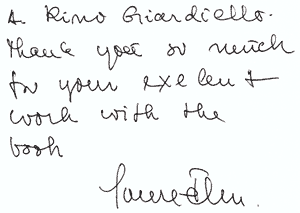 A Rino Giardiello.
Thank you so much
for your exelent
work with the
book